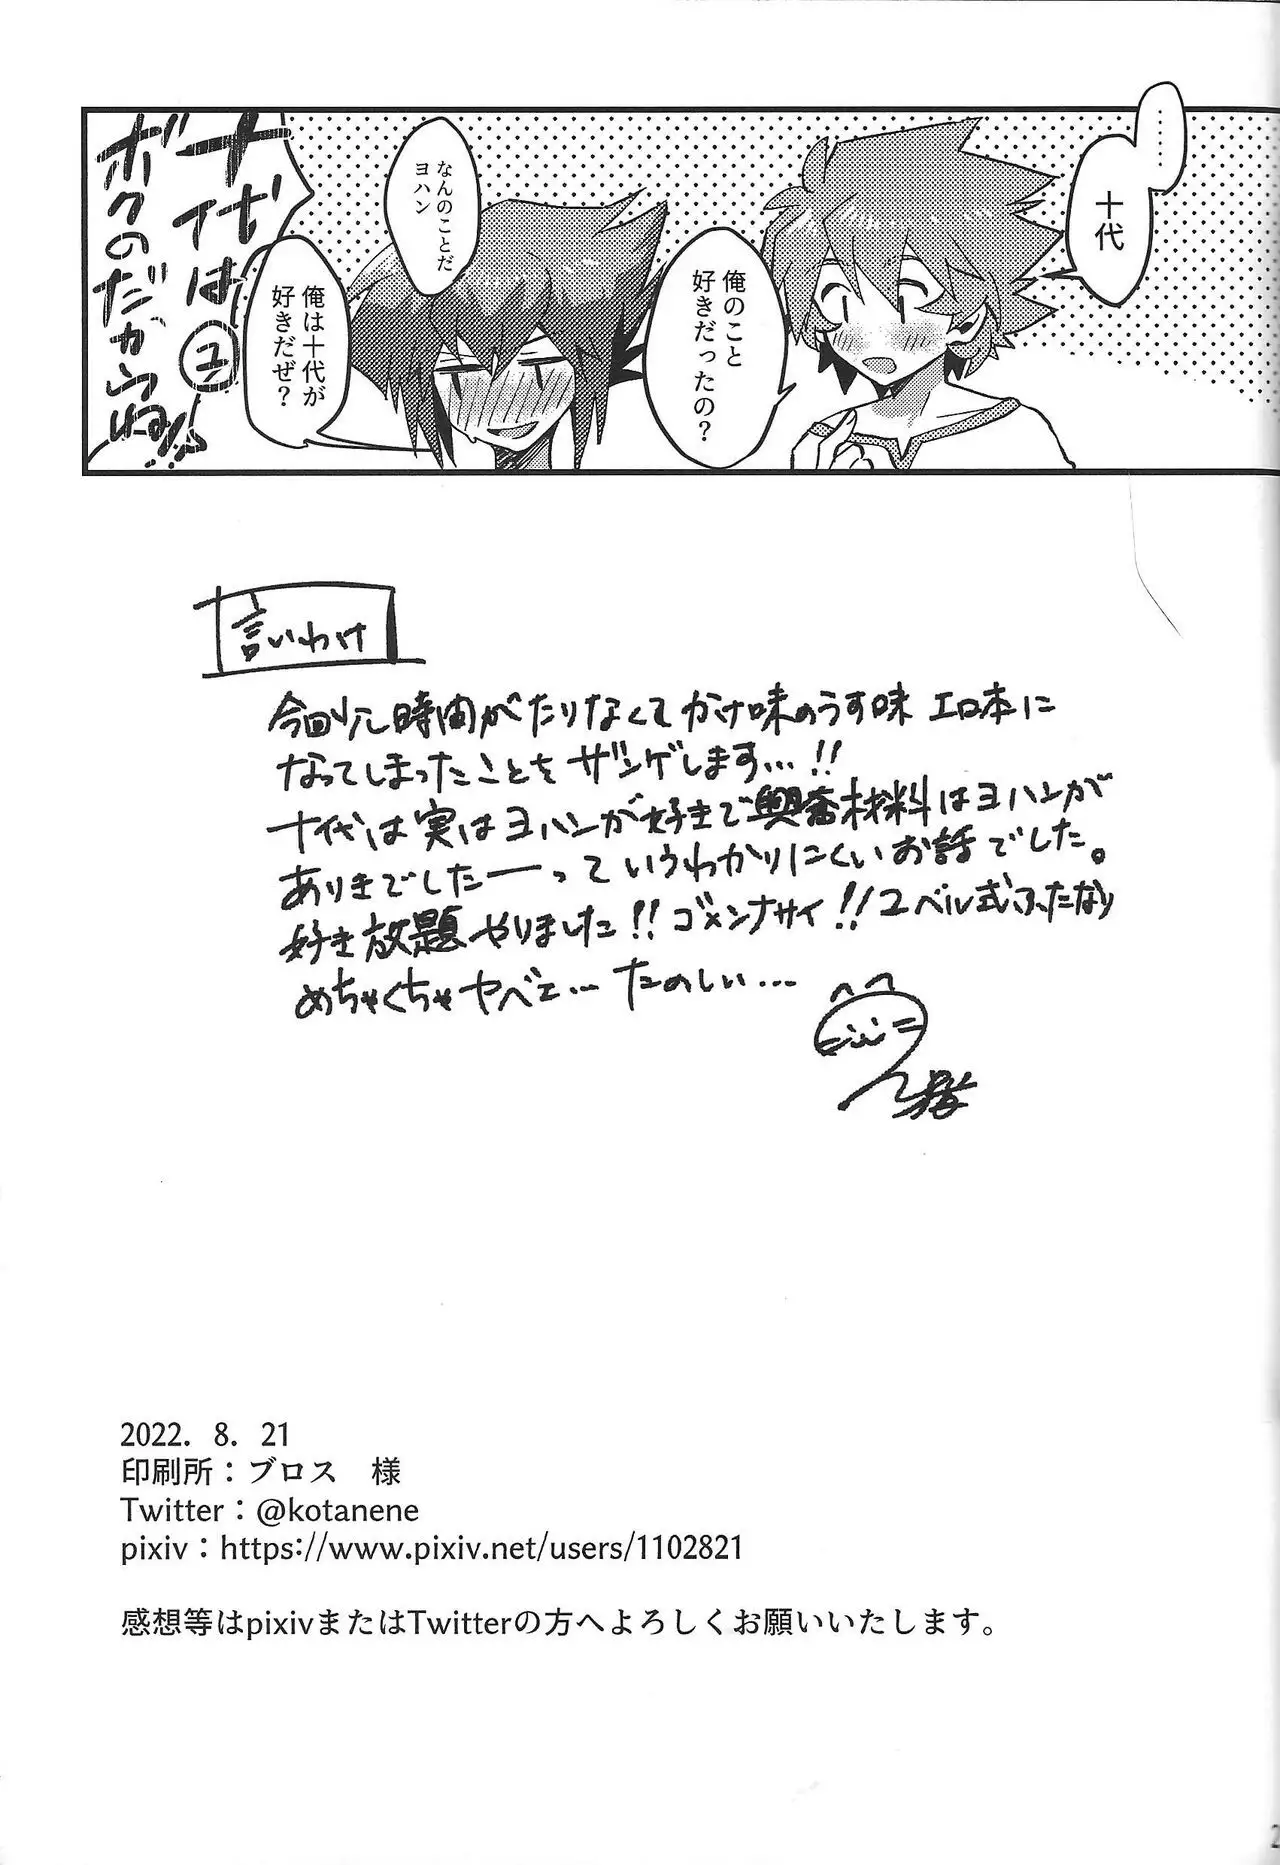 ……
十代
俺のこと
好きだったの？
なんのことだ
ヨハン
俺は十代が
好きだぜ？
十代は
ボクのだからね!!
ユ
言いわけ
今回少し時間がたりなくてかけ味のうす味エロ本に
なってしまったことをザンゲします…!!
十代は実はヨハンが好きで興奮材料はヨハンが
ありきでしたーっていうわかりにくいお話でした。
好き放題やりました!!ゴメンナサイ!!ユベル式ふたなり
めちゃくちゃヤベェ…たのしい…
2022. 8. 21
印刷所：ブロス　様
Twitter：@kotanene
pixiv：https://www.pixiv.net/users/1102821
感想等はpixivまたはTwitterの方へよろしくお願いいたします。